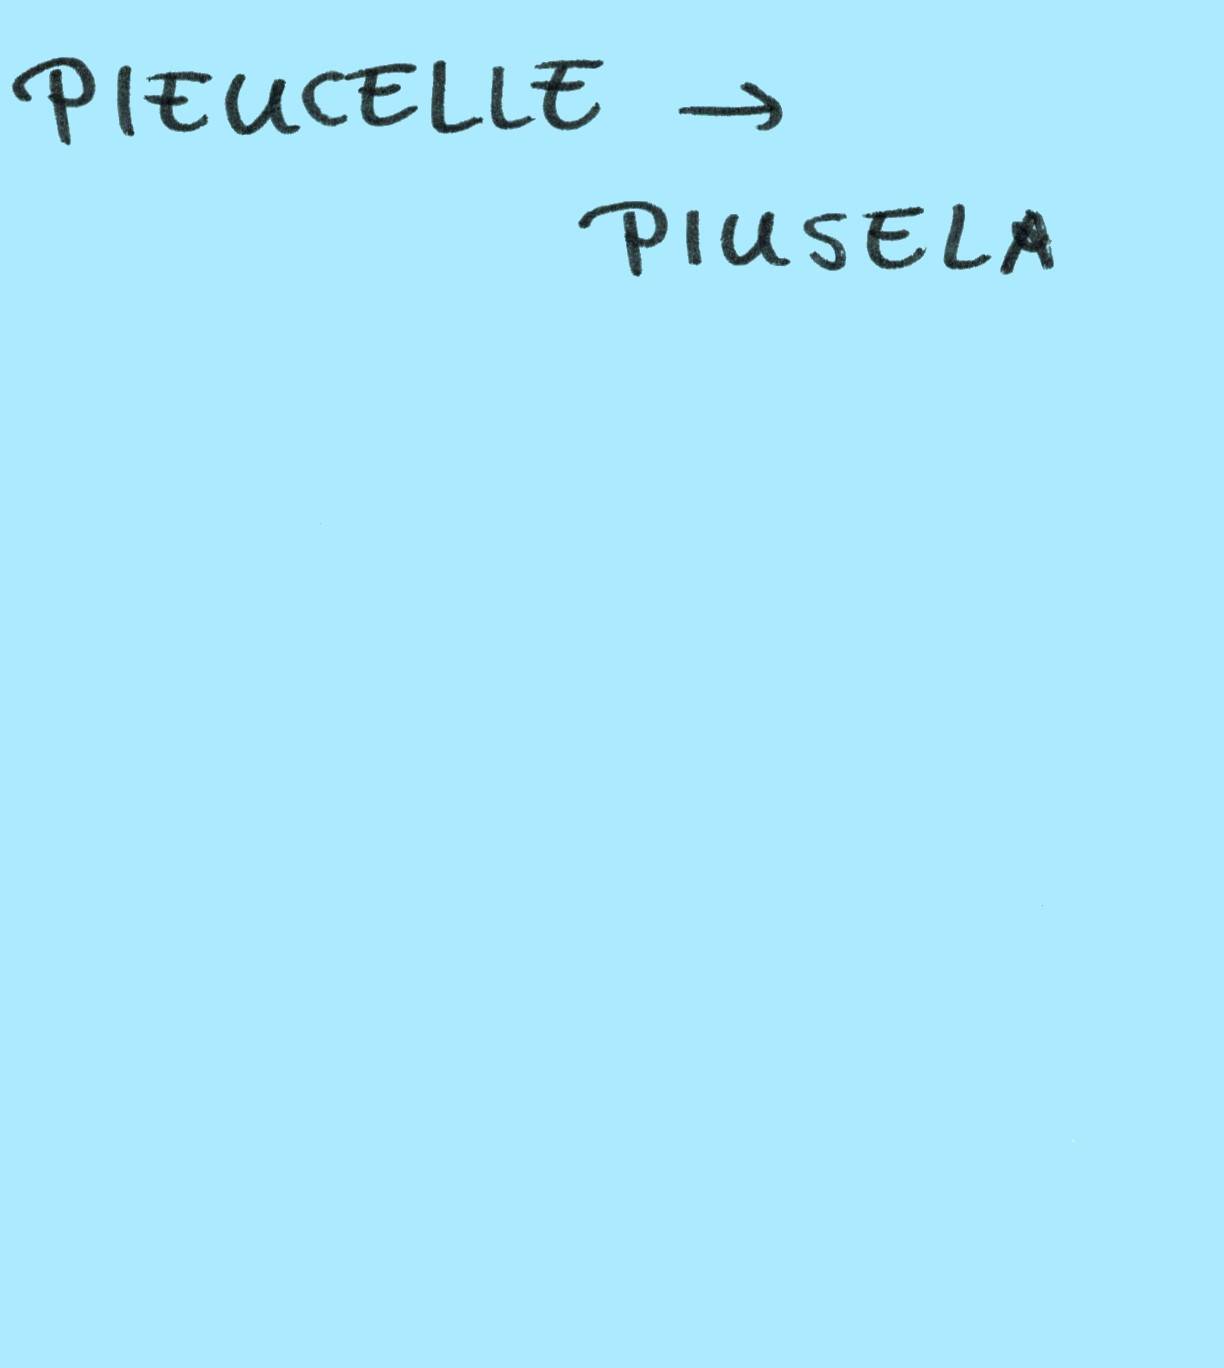 PIEUCELLE →
PIUSELA